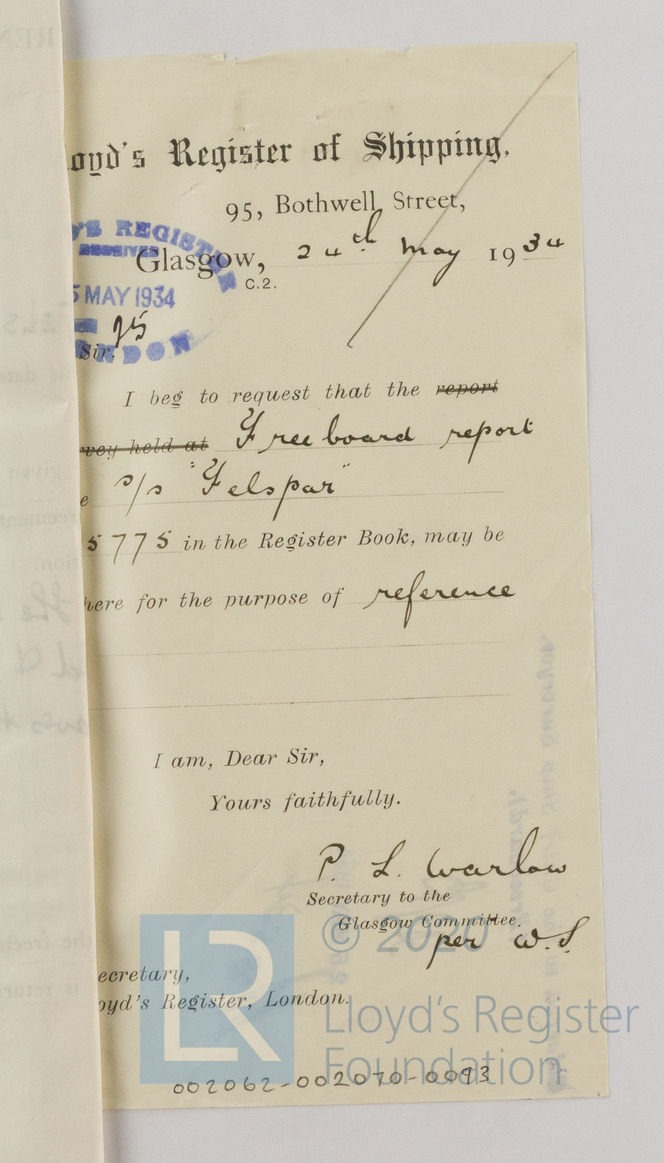 oyd's Register of Shipping.
95, Bothwell Street,
'S REGISTER
RECEIVED
Glasgow, 24th May 1934
C.2.
5 MAY 1934
25
Sir,
ONDON
I beg to request that the report
vey held at Freeboard report
e s/s "Felspar"
5775 in the Register Book, may be
here for the purpose of reference
I am, Dear Sir,
Yours faithfully.
P. L. Warlow
Secretary to the
Glasgow Committee.
per W.S.
ecretary,
oyd's Register, London.
LR
© 2020
Lloyd's Register
Foundation
002062-002070-0093